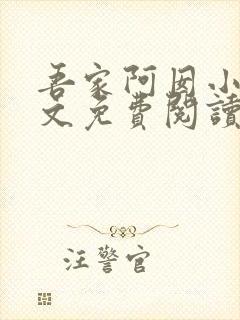 吾家阿囡小
文免費閱讀
汪警官